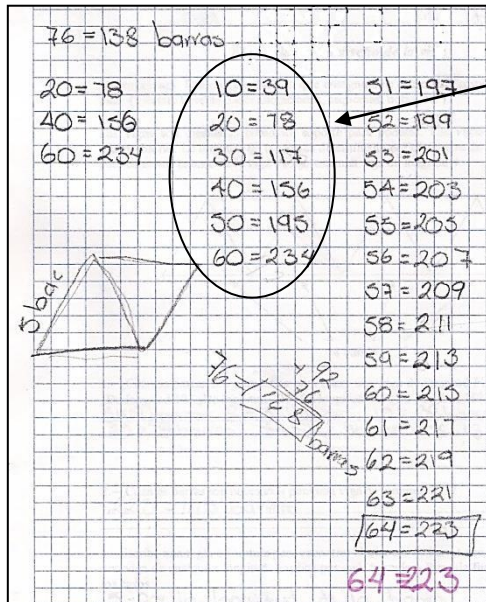 76 = 138 barras
20 = 78
40 = 156
60 = 234
10 = 39
20 = 78
30 = 117
40 = 156
50 = 195
60 = 234
51 = 197
52 = 199
53 = 201
54 = 203
55 = 205
56 = 207
57 = 209
58 = 211
59 = 213
60 = 215
61 = 217
62 = 219
63 = 221
64 = 223
64 = 223
5 bac
+ 92
76
76 = 168 barras